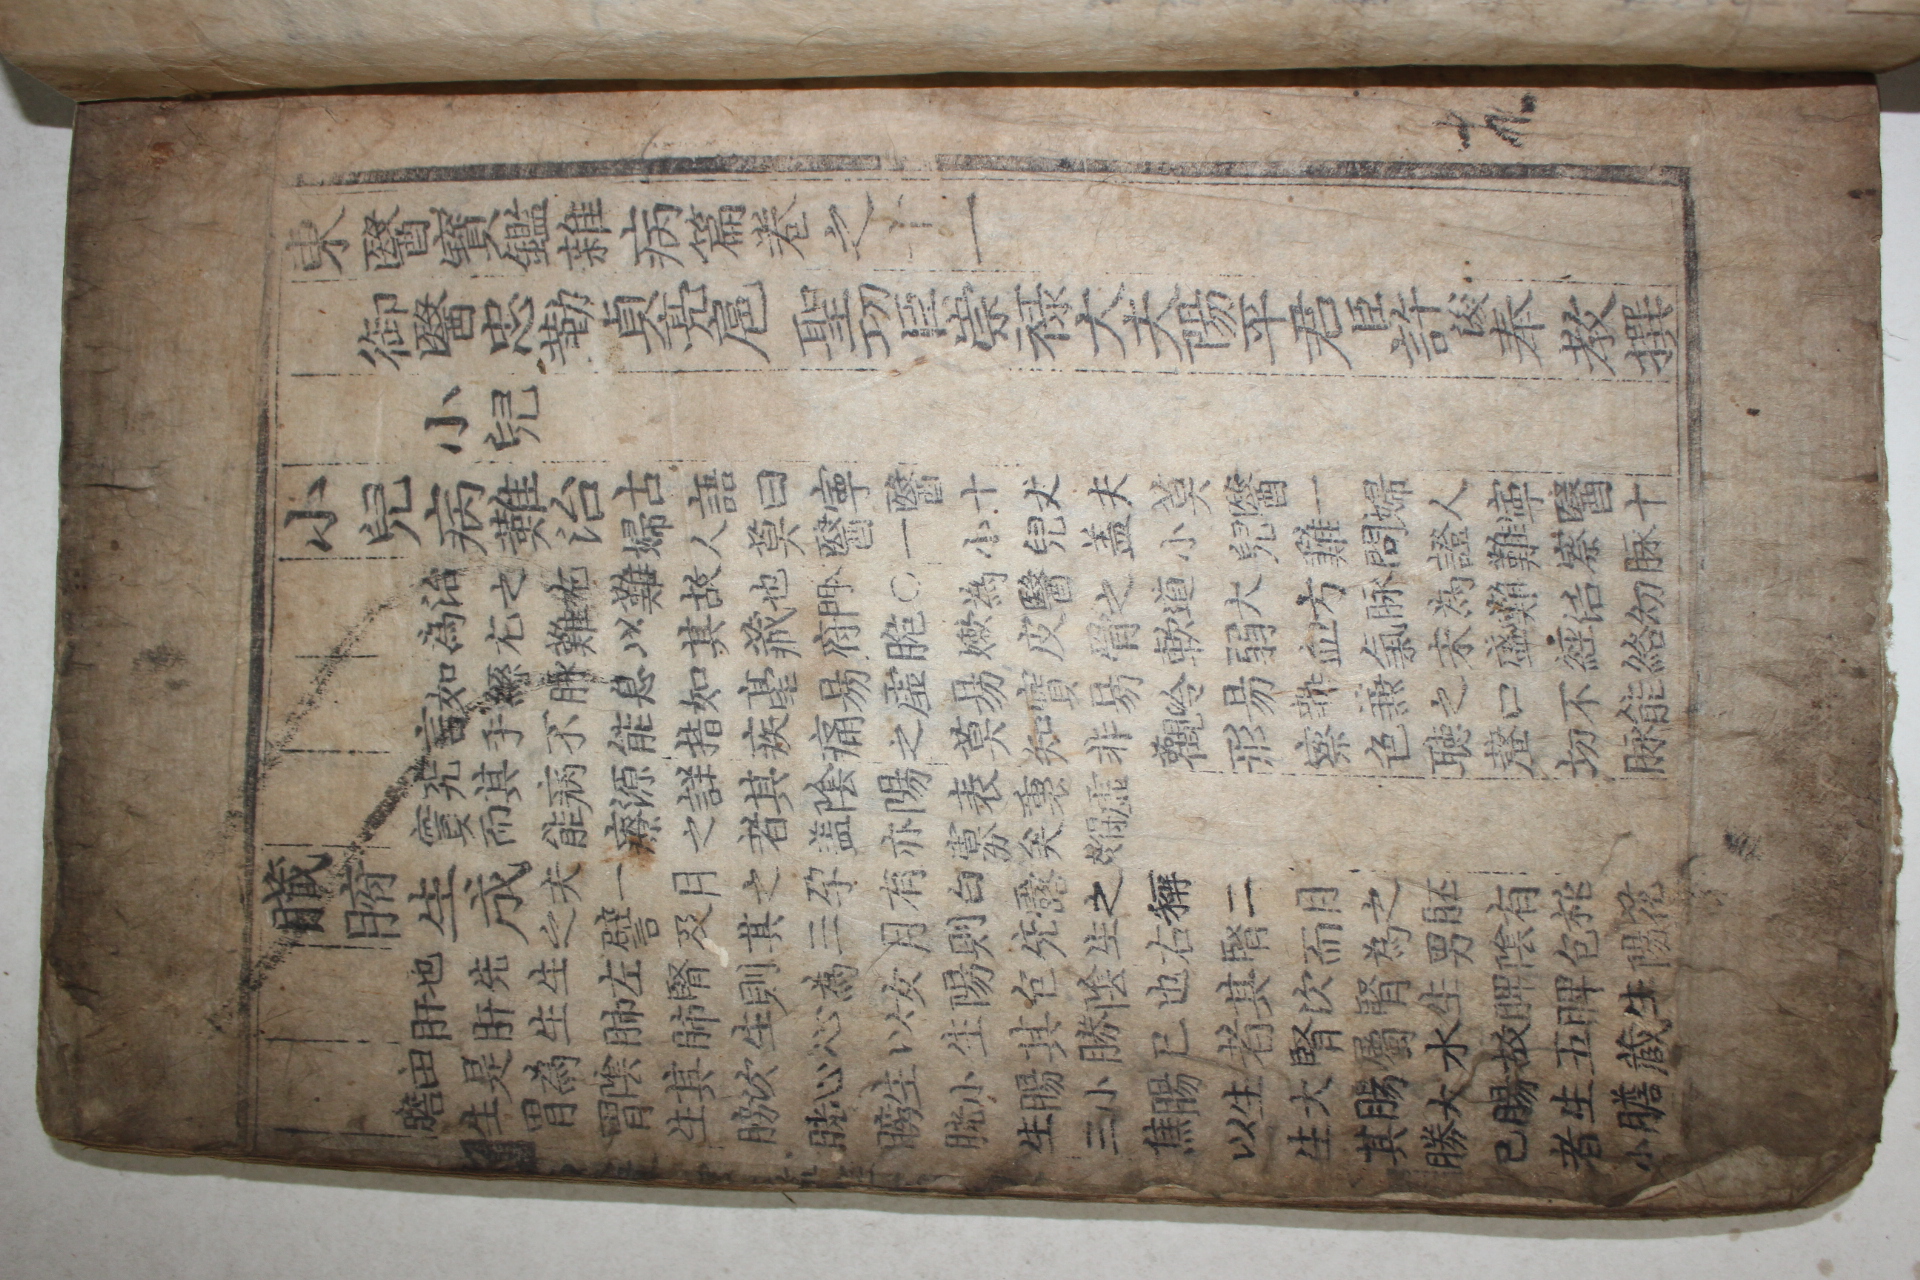 東醫寶鑑雜病篇卷之十一
御醫忠勤貞亮扈 聖功臣崇祿大夫陽平君臣許浚奉 教撰
小兒
小兒病難治
古語曰寧醫十丈夫莫醫一婦人寧醫十
婦人莫醫一小兒盖小兒難問證難察脉
治之尤難故也門○為醫之道大方脉為難活幼
為尤難以其藏府脆嫩皮骨軟弱血氣未盛經絡
如絲脉息如毫易虛易實易冷易熱兼之口不能
言手不能指疾痛之莫知非觀形察色聽聲切脉
究其病源詳其陰陽表裏虛
實而能療之者盖亦寡矣
臟腑生成
夫一月之孕有白露之稱二月之胚有桃花
之譬及其三月則先生右腎而為男陰包陽
也先生左腎則為女陽包陰也其次腎生脾脾生
肝肝生肺肺生心以生其勝己者腎屬水故五藏
由是為陰其次心生小腸小腸生大腸大腸生膽
膽生胃胃生膀胱膀胱生三焦以生其勝己者小
十九